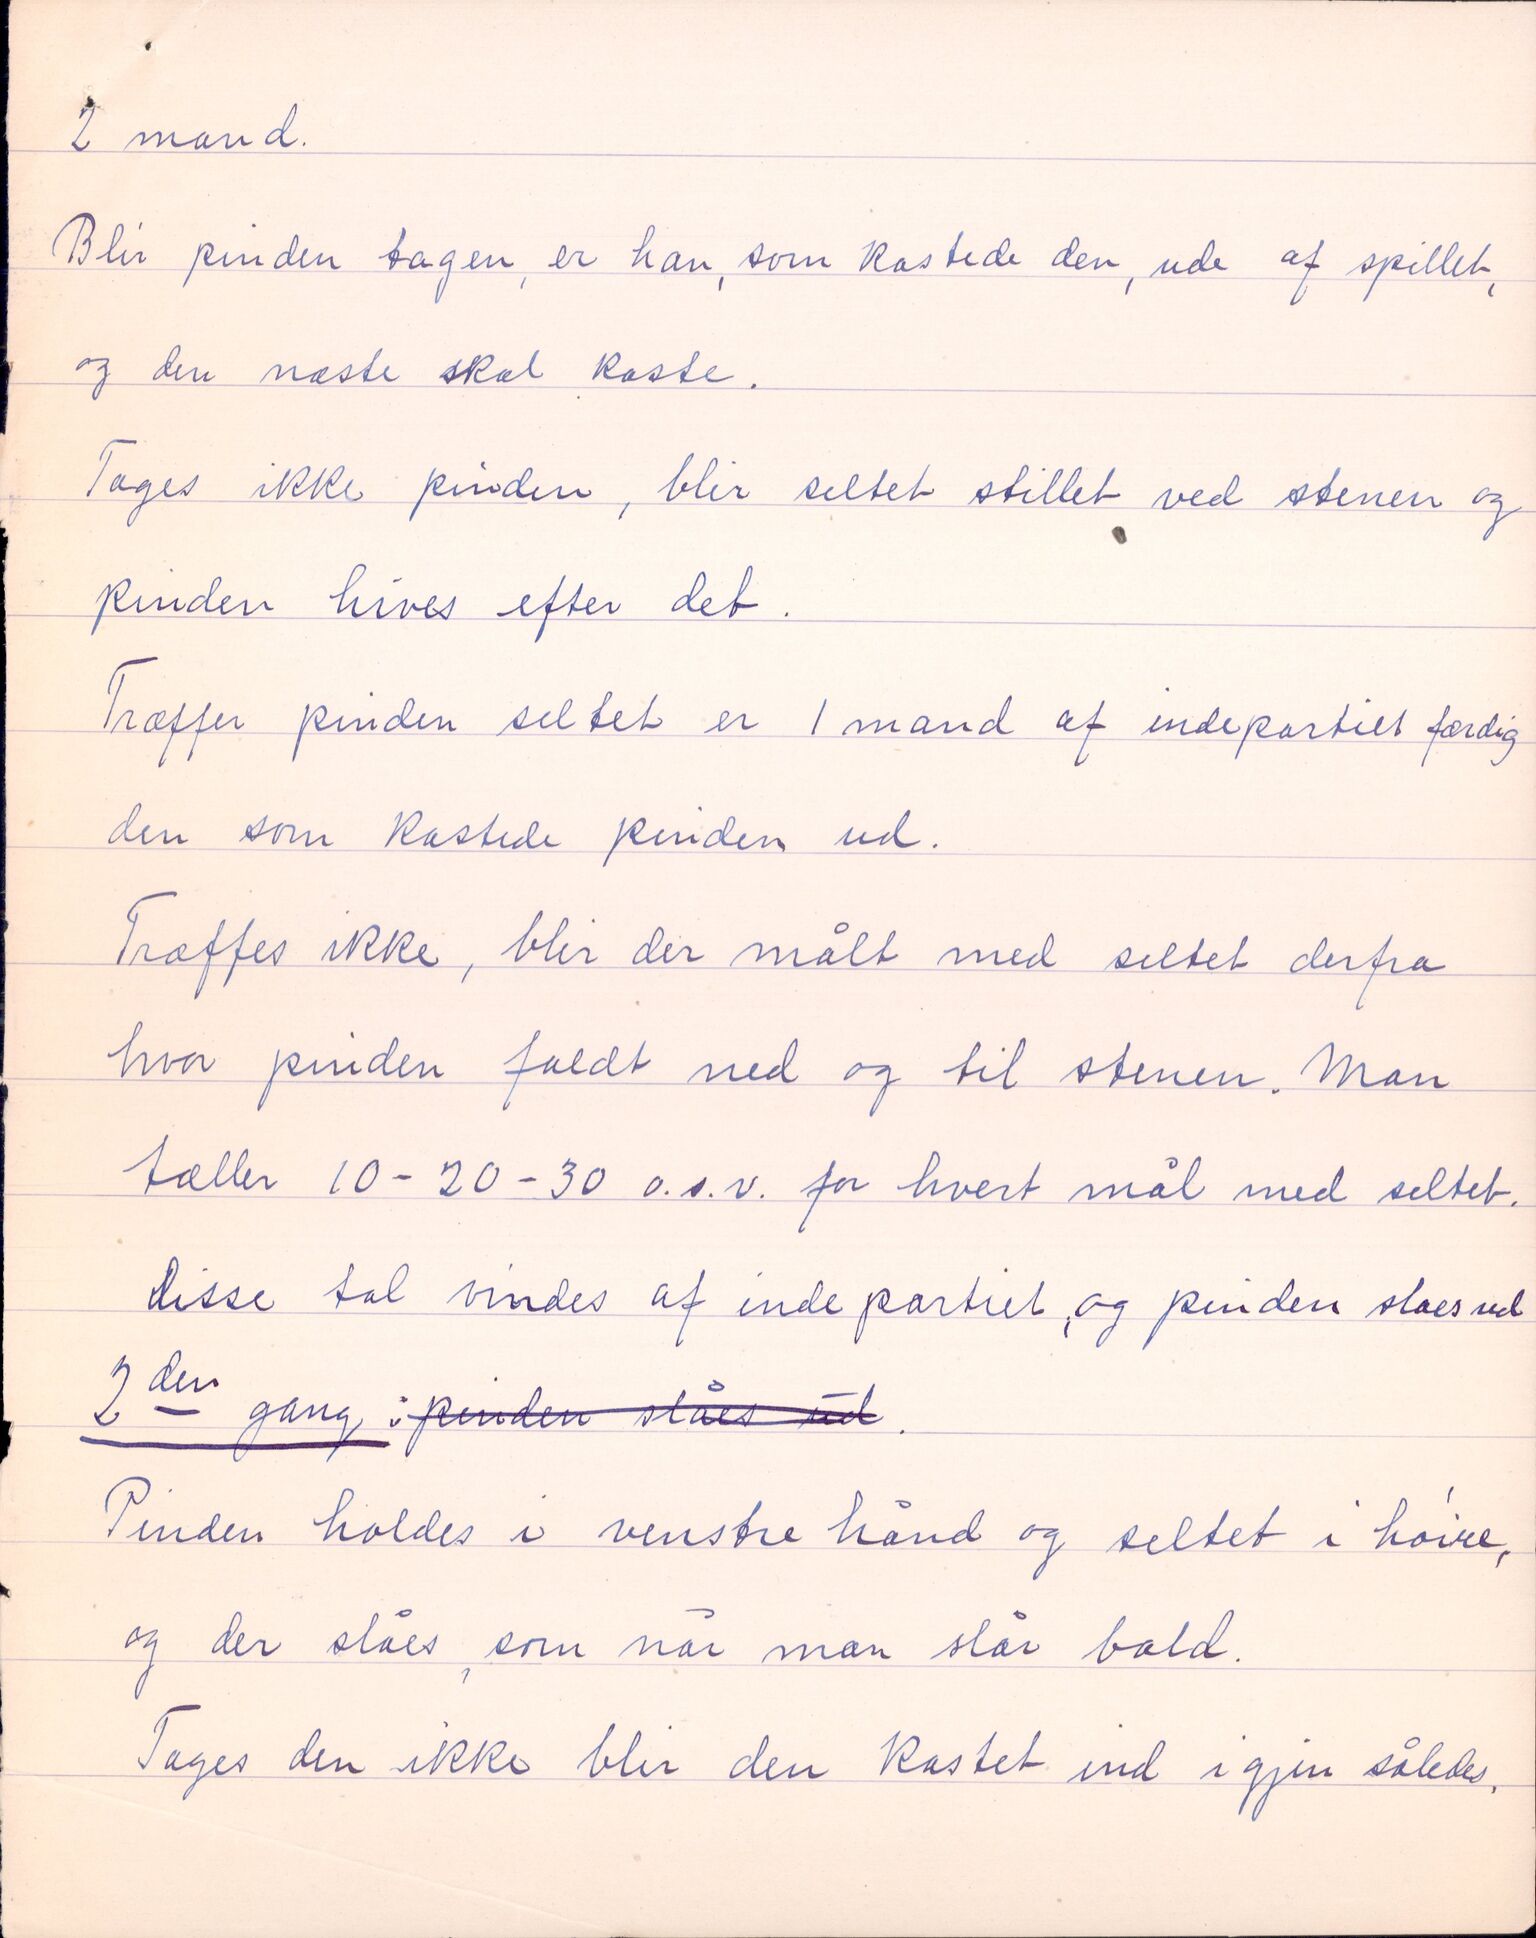 2 mand.
Blir pinden tagen, er han, som kastede den, ude af spillet,
og den næste skal kaste.
Tages ikke pinden, blir seltet stillet ved stenen og
pinden hives efter det.
Træffer pinden seltet er 1 mand af indepartiet færdig
den som kastede pinden ud.
Træffes ikke, blir der målt med seltet derfra
hvor pinden faldt ned og til stenen. Man
tæller 10-20-30 o.s.v. for hvert mål med seltet.
Disse tal vindes af indepartiet, og pinden slaes ud
2den gang : pinden slåes ud.
Pinden holdes i venstre hånd og seltet i høire,
og der slåes, som når man slår bald.
Tages den ikke blir den kastet ind igjen således.